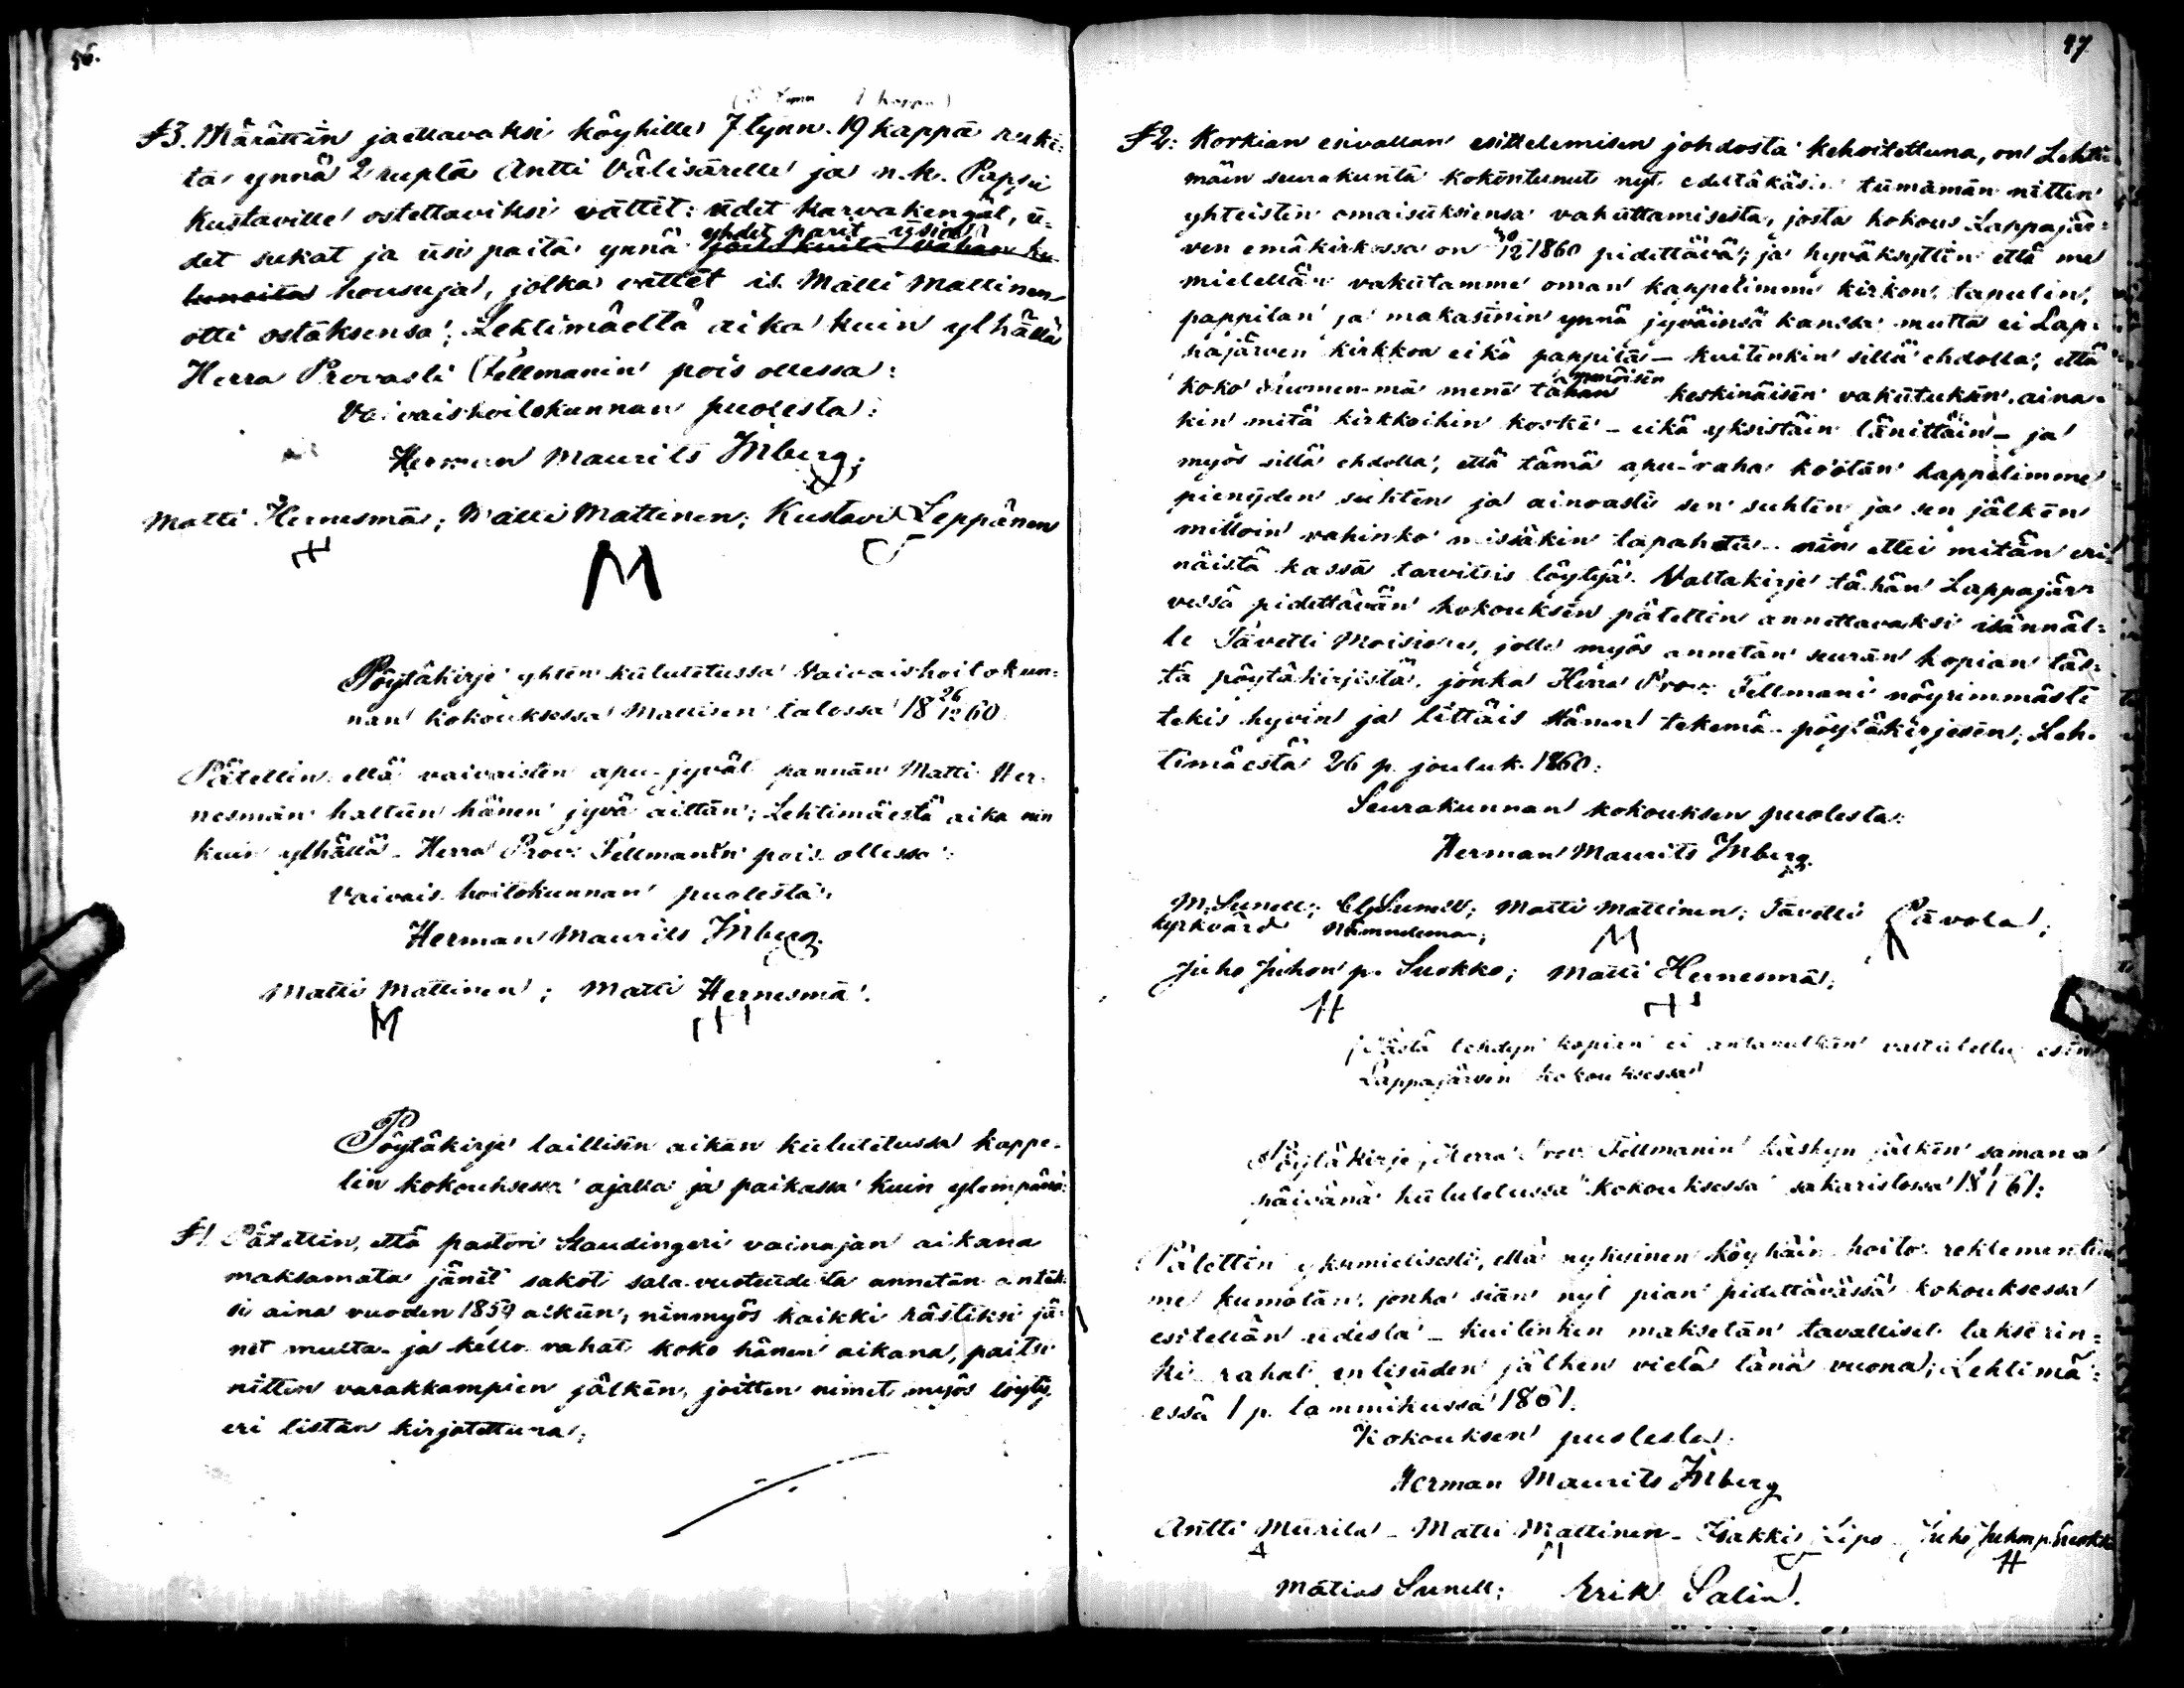 56.
§3. Märättin jaettavaksi köyhille 7 tynn. 19 kappa ruki:
ta ynnä 2 ruplã Antti Välisärelle ja n.k. Papsi
Kustaville ostettaviksi vättet: üdet karvakengät, ü-
yhdet parit
det sukat ja üsi paita ynnä
housuja, jotka vättet is. Matti Mattinen
otti ostaksensa; Lehtimäeltä aika kuin ylhällä
Herra Provasti Fellmanin pois ollessa:
Vaivaishoitokunnan puolesta:
Herman Maurits Inberg;
Matti Hernesmä; Matti Mattinen; Kustavi Leppänen
M
Pöytäkirje yhten kulutetussa Vaivaishoitokun:
nan kokouksessa Mattisen talossa 18 26/12 60.
Pätettin että vaivaisten apu-jyvät pannan Matti Her-
nesmän haltün hänen jyvä aittän; Lehtimäestä aika nin
kuin ylhällä. Herra Prov. Fellmanin pois ollessa:
Vaivais hoitokunnan puolesta:
Herman Maurits Inberg.
Matti Mattinen; Matti Hernesmä.
M
Pöytäkirje laillisen aikan kulutetussa kappe-
lin kokouksessa ajalla ja paikassa kuin ylempänä:
§1. Pätettin, että pastori Staudingeri vainajan aikana
maksamata jänet sakot sala-vuoteudesta annetan anteik
si aina vuoden 1859 alkün; ninmyös kaikki rästiksi jä-
net multa- ja kello rahat koko hänen aikana, paitsi
nitten varakkampien jälken, joitten nimet myös löyty
eri listan kirjotettuna;
47
§2: Korkian esivallan esittelemisen johdosta kehoitettuna, on Lehti-
mäin seurakunta kokontunut nyt edeltäkäsin tümämän nitten
yhteisten omaisüksiensa vakuttamisesta, josta kokous Lappajär:
ven emäkirkossa on 30/12 1860 pidettävä; ja hyväksyttin että me
mielellän vakutamme oman kappelimme kirkon, tapulin,
pappilan ja makasinin ynnä jyväinsä kanssa mutta ei Lap-
pajärven kirkkoa eikä pappilä - kuitenkin sillä ehdolla, että
koko Suomen-mä menë tähän keskinäisën vakutuksen. aina-
kin mitä kirkkoihin koskë - eikä yksistäin länittäin - ja
myös sillä ehdolla, että tämä apu-raha koötan kappelimme
pienyden suhtën ja ainoasti sen suhtën ja sen jälkën
milloin vahinko missäkin tapahtu - nin ettei mitän eri
näistä kassa tarvitsis löytyä. Valtakirje tähän Lappajär-
vessä pidettävän kokouksen pätettin annettavaksi isännäl-
le Tävetti Moisio, jolle myös annetan seuran kopian täs-
tä pöytäkirjestä, jonka Herra Prov. Fellmani nöyrimmästi
tekis hyvin ja littäis hänen tekemä pöytäkirjesen; Leh-
timäestä 26 p. jouluk. 1860:
Seurakunnan kokouksen puolesta:
Herman Maurits Inberg.
M. Sunell; Sunell; Matti Mattinen; Tävetti Pävola;
kyrkvärd Nämndeman;
M
Juho Juhon p. Suokko; Matti Hernesmä;
tehdyn kopian ei
Lappajärven kokouksessa
Pöytäkirje, Herra Prov. Fellmanin käskyn jälken samana
päivänä kulutetussa kokouksessa sakaristossa 18 1/1 61:
Pätettin yksimielisesti, että nykyinen köyhäin hoito reklementtim
me kumotän, jonka siän nyt pian pidettävässä kokouksessa
esitellän üdesta - kuitenkin maksetan tavalliset takserin-
ki rahat entisüden jälken vielä tänä vuona; Lehtimä:
essä 1 p. tammikussa 1861.
Kokouksen puolesta:
Herman Maurits Inberg
Antti Mürila - Matti Mattinen - Isakki Lipo - Juho Juhon p. Suokko
Matias Sunell; Erik Salin.